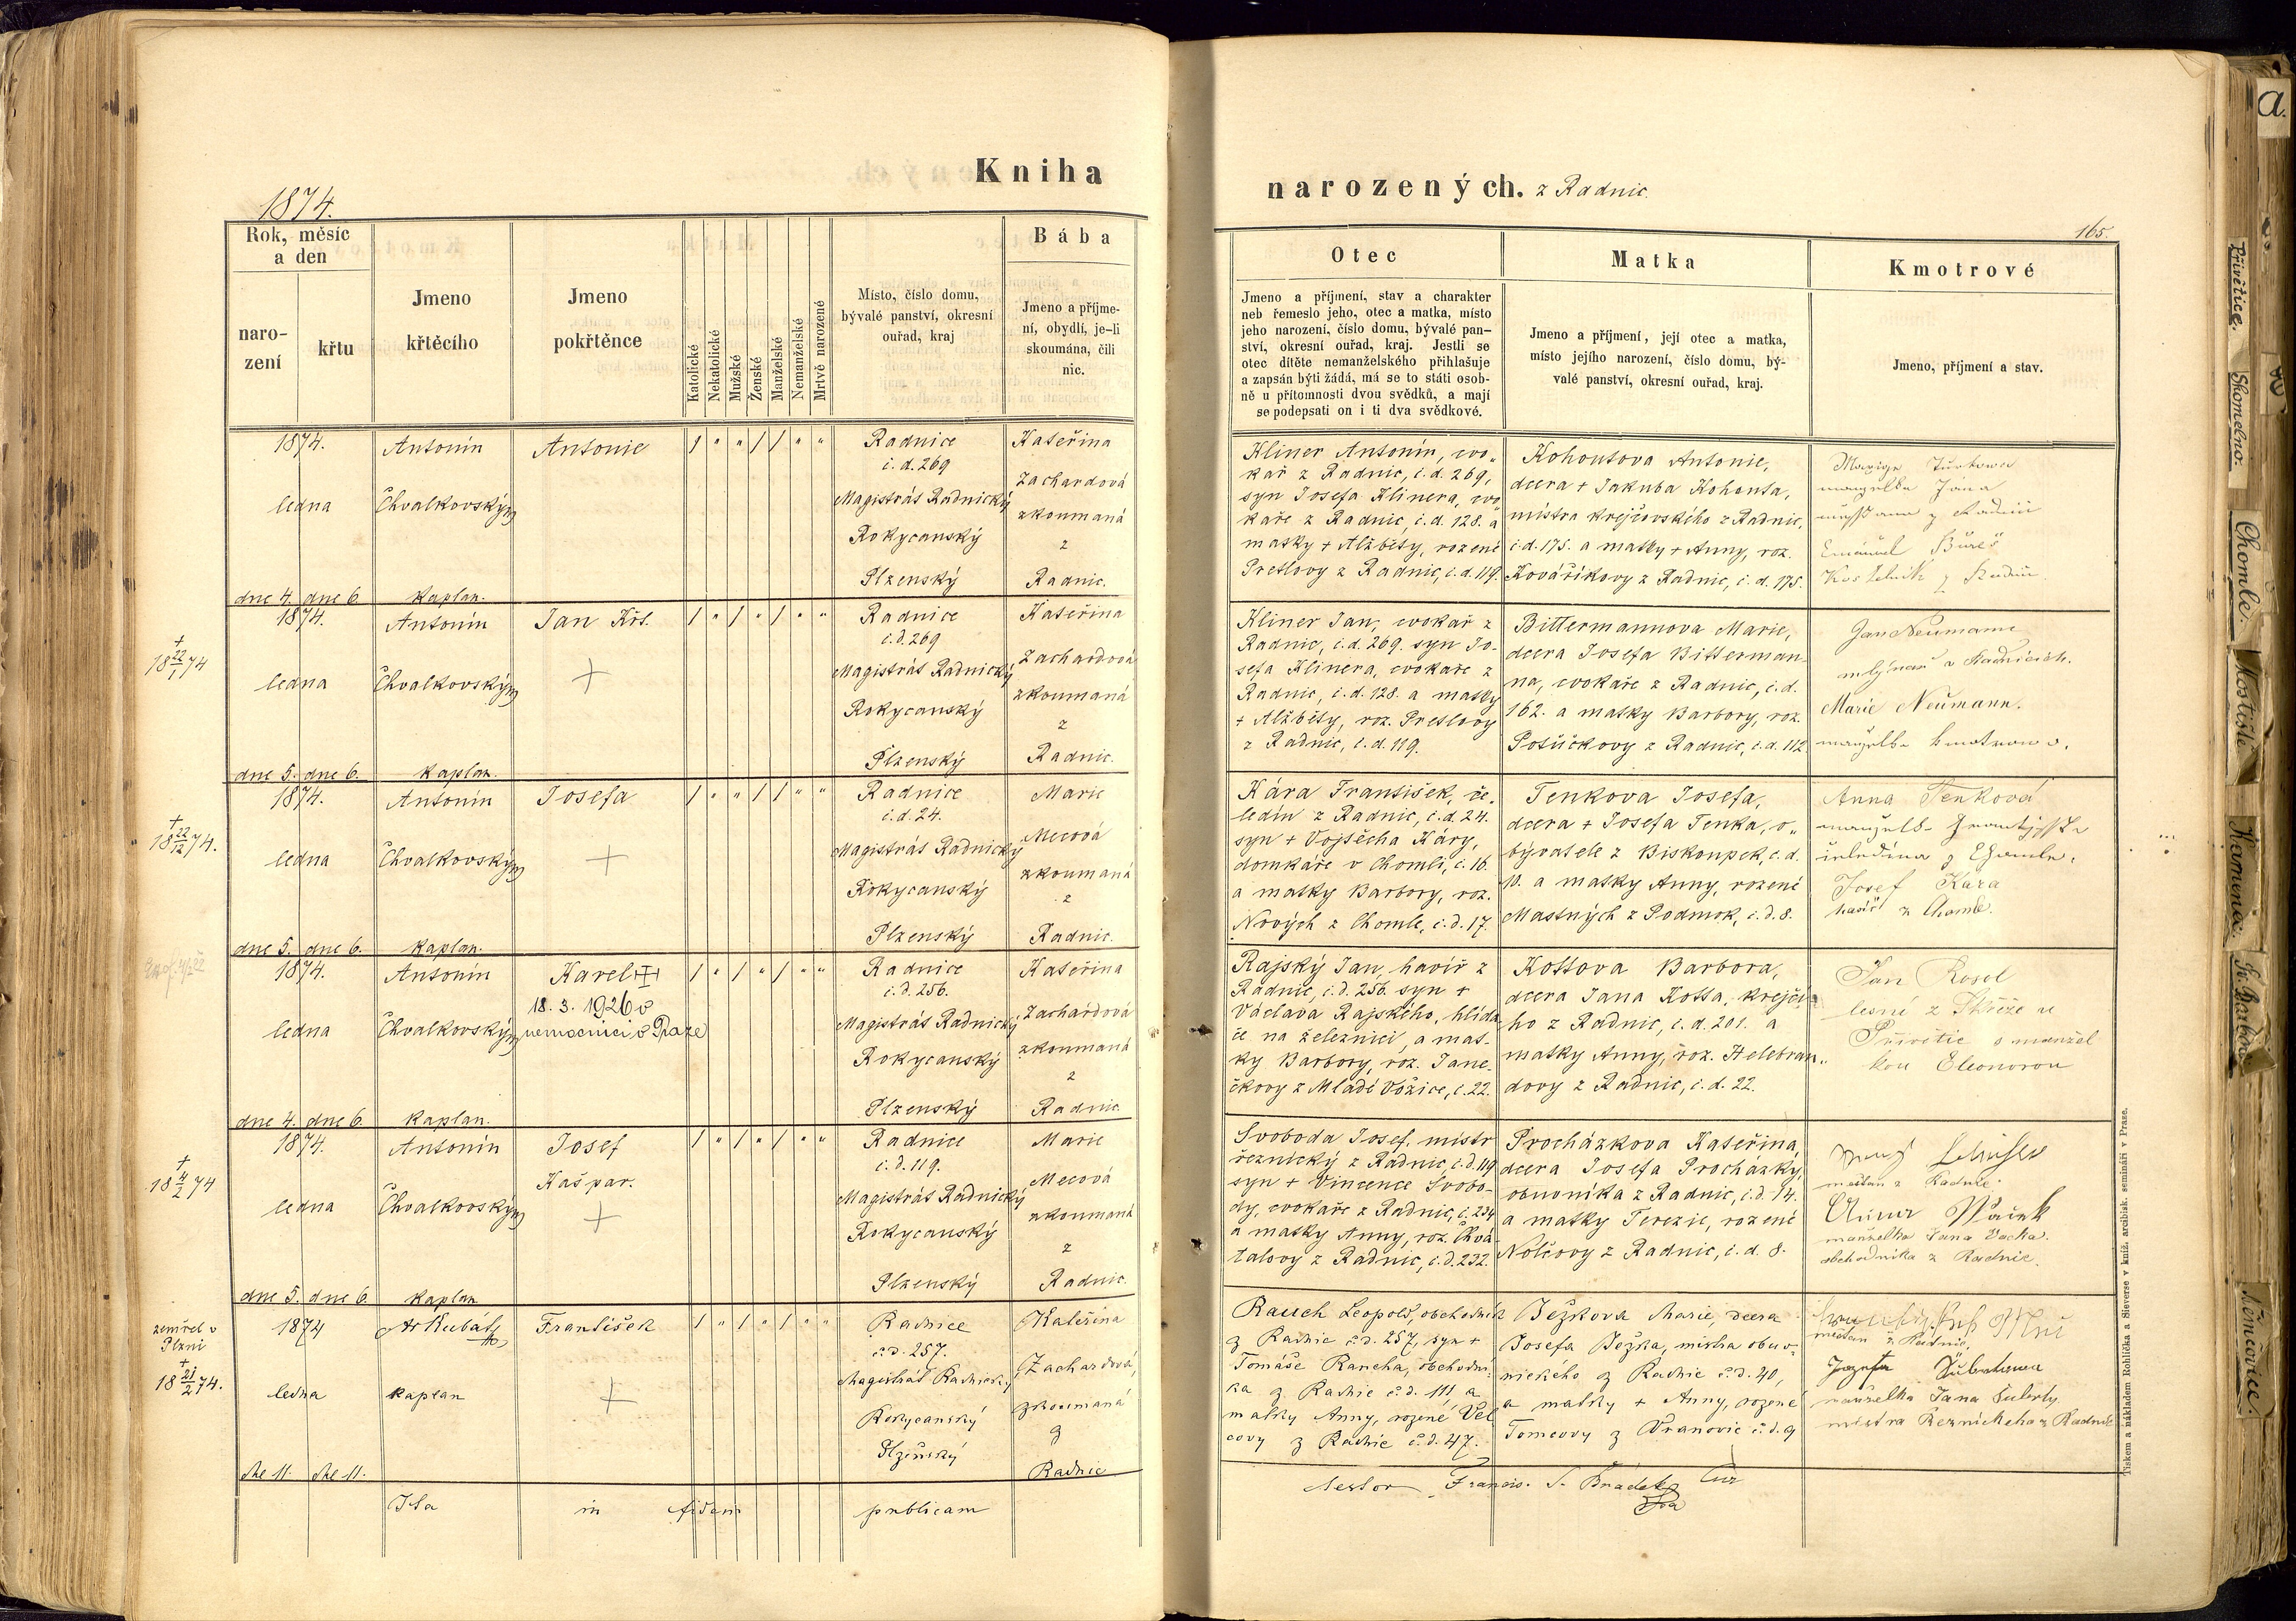 Kniha
narozených. z Radnic.
1874.
165.
Rok, měsíc
a den
naro-
zení
křtu
Jmeno
křtěcího
Jmeno
pokřtěnce
Katolické
Nekatolické
Mužské
Ženské
Manželské
Nemanželské
Mrtvě narozené
Místo, číslo domu,
bývalé panství, okresní
ouřad, kraj
Bába
Jmeno a příjme-
ní, obydlí, je-li
skoumána, čili
nic.
Otec
Jmeno a příjmení, stav a charakter
neb řemeslo jeho, otec a matka, místo
jeho narození, číslo domu, bývalé pan-
ství, okresní ouřad, kraj. Jestli se
otec dítěte nemanželského přihlašuje
a zapsán býti žádá, má se to státi osob-
ně u přítomnosti dvou svědků, a mají
se podepsati on i ti dva svědkové.
Matka
Jmeno a příjmení, její otec a matka,
místo jejího narození, číslo domu, bý-
valé panství, okresní ouřad, kraj.
Kmotrové
Jmeno, příjmení a stav.
1874.
ledna
dne 4. dne 6.
Antonín
Chvalkovský
kaplan.
Antonie
/ " " / / " "
Radnice
č. d. 269
Magistrát Radnický
Rokycanský
Plzenský
Kateřina
Zachardová
zkoumaná
z
Radnic.
Kliner Antonín, cvo-
kař z Radnic, č. d. 269,
syn Josefa Klinera, cvo-
kaře z Radnic, č. d. 128. a
matky + Alžběty, rozené
Pretlovy z Radnic, č. d. 119.
Kohoutova Antonie,
dcera + Jakuba Kohouta,
mistra krejčovského z Radnic,
č. d. 175. a matky + Anny, roz.
Kovaříkovy z Radnic, č. d. 175.
manželka Jana
Emanuel Bureš
Kostelník z Radnic
+
18 22/1 74
1874.
ledna
dne 5. dne 6.
Antonín
Chvalkovský
kaplan.
Jan Křt.
+
/ " / " / " "
Radnice
č. d. 269
Magistrát Radnický
Rokycanský
Plzenský
Kateřina
Zachardová
zkoumaná
z
Radnic.
Kliner Jan, cvokař z
Radnic, č. d. 269. syn Jo-
sefa Klinera, cvokaře z
Radnic, č. d. 128. a matky
+ Alžběty, roz. Pretlovy
z Radnic, č. d. 119.
Bittermannova Marie,
dcera Josefa Bitterman-
na, cvokaře z Radnic, č. d.
162. a matky Barbory, roz.
Potůčkovy z Radnic, č. d. 112
Jan Neumann
mlýnař v Radnicích.
Marie Neumann.
manželka kmotrova.
+
18 22/12 74.
1874.
ledna
dne 5. dne 6.
Antonín
Chvalkovský
kaplan.
Josefa
+
/ " " / / " "
Radnice
č. d. 24.
Magistrát Radnický
Rokycanský
Plzenský
Marie
Mecová
zkoumaná
z
Radnic.
Kára František, če-
ledín z Radnic, č. d. 24.
syn + Vojtěcha Káry,
domkáře v Chomli, č. 16.
a matky Barbory, roz.
Nových z Chomle, č. d. 17.
Tenkova Josefa,
dcera + Josefa Tenka, o-
bývatele z Biskoupek, č. d.
10. a matky Anny, rozené
Mastných z Podmok, č. d. 8.
Anna Tenková
manželka Františka
čeledína z Chomle.
Josef Kára
havíř z Chomle.
1874.
ledna
dne 4. dne 6.
Antonín
Chvalkovský
kaplan.
Karel
18. 3. 1926 v
nemocnici v Praze
/ " / " / " "
Radnice
č. d. 256.
Magistrát Radnický
Rokycanský
Plzenský
Kateřina
Zachardová
zkoumaná
z
Radnic.
Rajský Jan, havíř z
Radnic, č. d. 256. syn +
Václava Rajského, hlída-
če na železnici, a mat-
ky Barbory, roz. Jane-
čkovy z Mladé Vožice, č. 22.
Kottova Barbora,
dcera Jana Kotta, krejčí-
ho z Radnic, č. d. 201. a
matky Anny, roz. Helebran-
dovy z Radnic, č. d. 22.
Jan Kosel
lesní z Skříže u
Přívětic s manžel
kou Eleonorou
+
18 4/2 74
1874.
ledna
dne 5. dne 6.
Antonín
Chvalkovský
kaplan
Josef
Kašpar.
+
/ " / " / " "
Radnice
č. d. 119.
Magistrát Radnický
Rokycanský
Plzenský
Marie
Mecová
zkoumaná
z
Radnic.
Svoboda Josef, mistr
řeznický z Radnic, č. d. 119
syn + Vincence Svobo-
dy, cvokaře z Radnic, č. 234
a matky Anny, roz. Chvá-
talovy z Radnic, č. d. 232.
Procházkova Kateřina,
dcera Josefa Procházky,
obuvníka z Radnic, č. d. 14.
a matky Terezie, rozené
Nolčovy z Radnic, č. d. 8.
měšťan z Radnic.
Anna Wacek
manželka Jana Vacka.
obchodníka z Radnic.
zemřel v
Plzni
+
18 21/2 74.
1874
ledna
dne 11. dne 11.
Ant Kubát
kaplan
František
+
/ " / " / " "
Radnice
č. d. 257.
Magistrát Radnický
Rokycanský
Plzeňský
Kateřina
Zachardová,
zkoumaná
z
Radnic
Rauch Leopold, obchodník
z Radnic č. d. 257, syn +
Tomáše Raucha, obchodní-
ka z Radnic č. d. 111, a
matky Anny, rozené Vel
covy z Radnic č. d. 47.
Ježkova Marie, dcera
Josefa Ježka, mistra obuv-
nického z Radnic č. d. 40,
a matky + Anny, rozené
Tomcovy z Vranovic č. d. 9
měšťan z Radnic,
Josefa Šubrtowa
manželka Jana Šubrty
mistra Řeznickeho z Radnic
Ita in fidem publicam
testor Francis. S. Hradek
Tiskem a nákladem Rohlíčka a Sieverse v kníž. arcibisk. semináři v Praze.
a.
Přívětice.
Skomelno.
Chomle.
Mostiště
Kamenec.
Sv. Barbora
Němčovice.